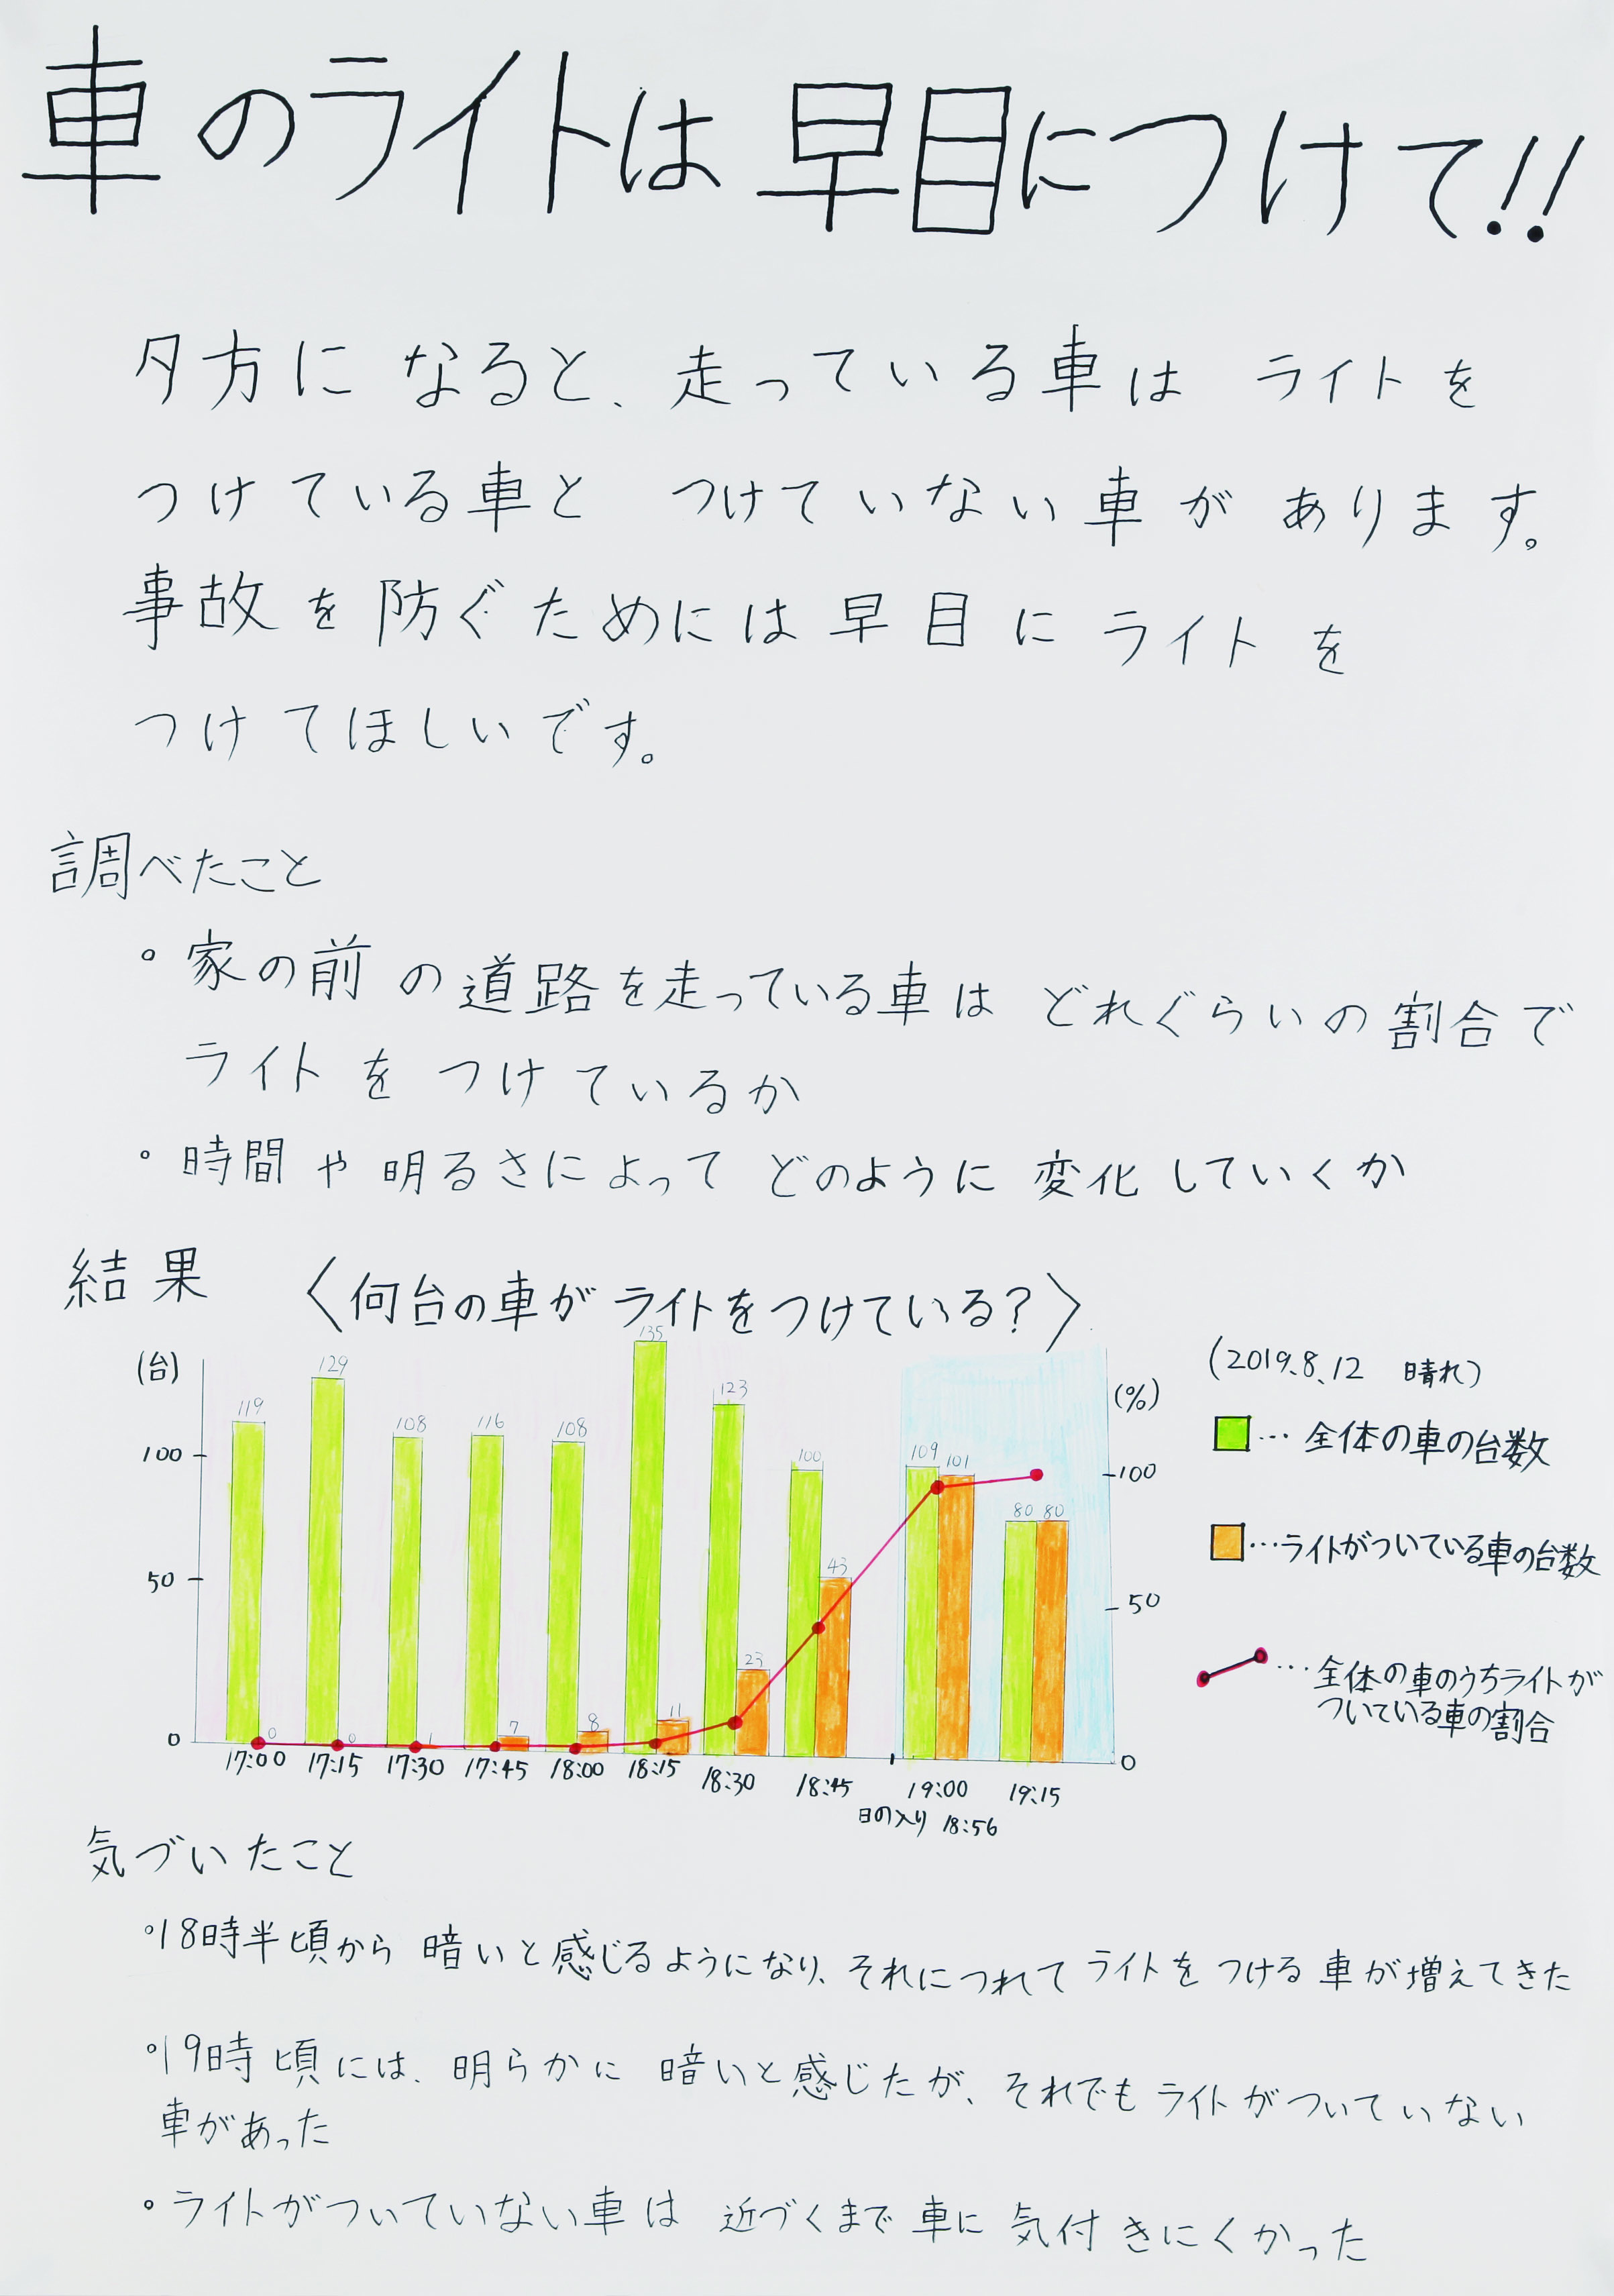 車のライトは早目につけて!!
夕方になると、走っている車はライトを
つけている車とつけていない車があります。
事故を防ぐためには早目にライトを
つけてほしいです。
調べたこと
・家の前の道路を走っている車はどれぐらいの割合で
ライトをつけているか
・時間や明るさによってどのように変化していくか
結果 〈何台の車がライトをつけている?〉
(2019.8.12 晴れ)
(台)
(%)
100
50
0
119
129
108
116
108
135
123
100
109
80
0
0
1
7
8
11
23
43
101
80
100
50
0
17:00 17:15 17:30 17:45 18:00 18:15 18:30 18:45 19:00 19:15
日の入り 18:56
… 全体の車の台数
…ライトがついている車の台数
… 全体の車のうちライトが
ついている車の割合
気づいたこと
・18時半頃から暗いと感じるようになり、それにつれてライトをつける車が増えてきた
・19時頃には、明らかに暗いと感じたが、それでもライトがついていない
車があった
・ライトがついていない車は近づくまで車に気付きにくかった